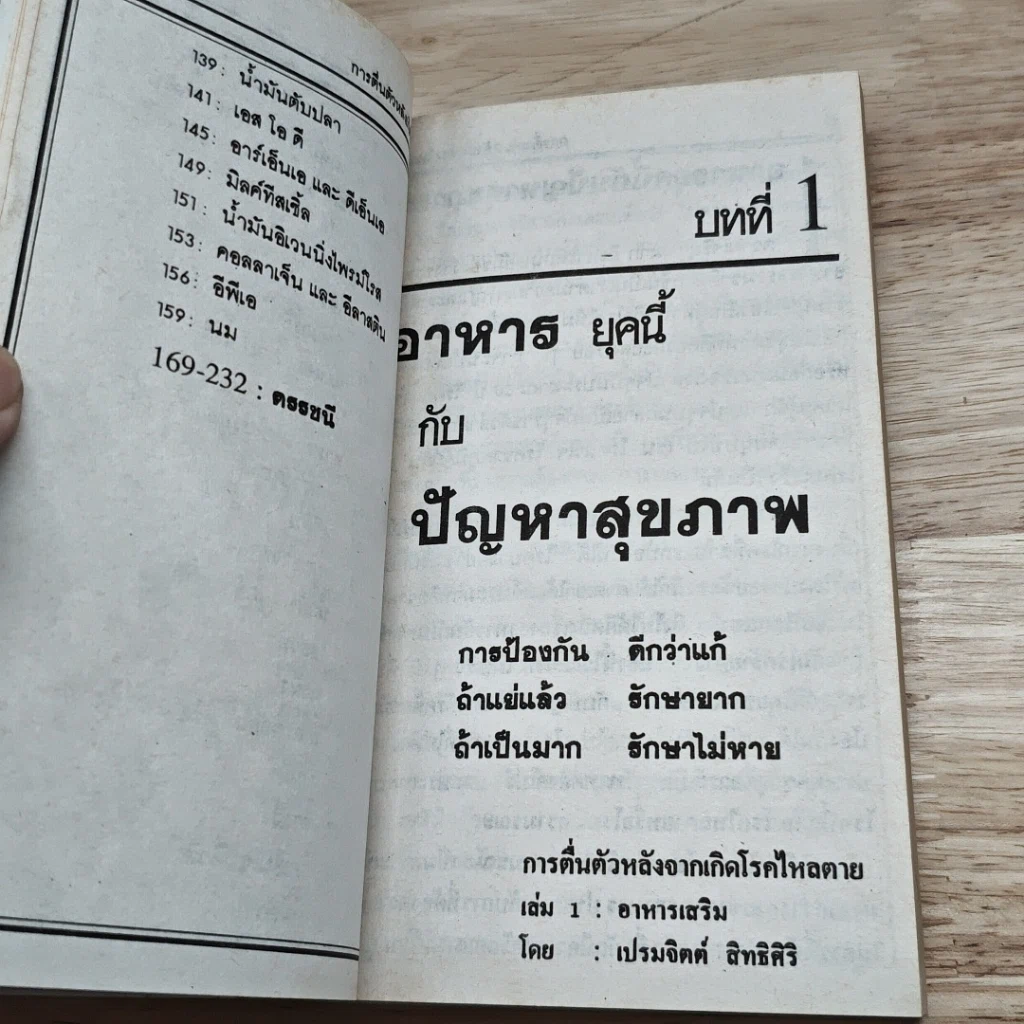 การตื่นตัวหลัง
139 : น้ำมันตับปลา
141 : เอส โอ ดี
145 : อาร์เอ็นเอ และ ดีเอ็นเอ
149 : มิลค์ทีสเซิ้ล
151 : น้ำมันอิเวนนิ่งไพรม์โรส
153 : คอลลาเจ็น และ อีลาสติน
156 : อีพีเอ
159 : นม
169-232 : ดรรชนี
บทที่ 1
อาหาร ยุคนี้
กับ
ปัญหาสุขภาพ
การป้องกัน ดีกว่าแก้
ถ้าแย่แล้ว รักษายาก
ถ้าเป็นมาก รักษาไม่หาย
การตื่นตัวหลังจากเกิดโรคไหลตาย
เล่ม 1 : อาหารเสริม
โดย : เปรมจิตต์ สิทธิศิริ